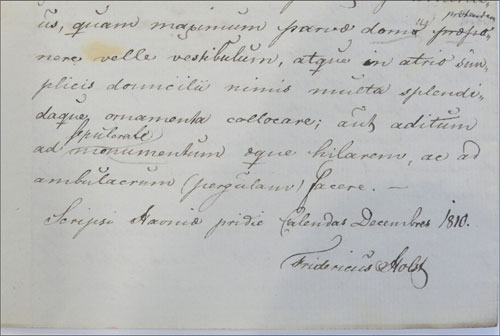 us, quam maximum parvæ domui præpo-
nere velle vestibulum, atque in atrio sim-
plicis domicilii nimis multa splendi-
daque ornamenta collocare; aut aditum
sepulcrale
ad monumentum æque hilarem, ac ad
ambulacrum (pergulam) facere. —
Scripsi Havniæ pridie Calendas Decembres 1810.
Fridericus Holst